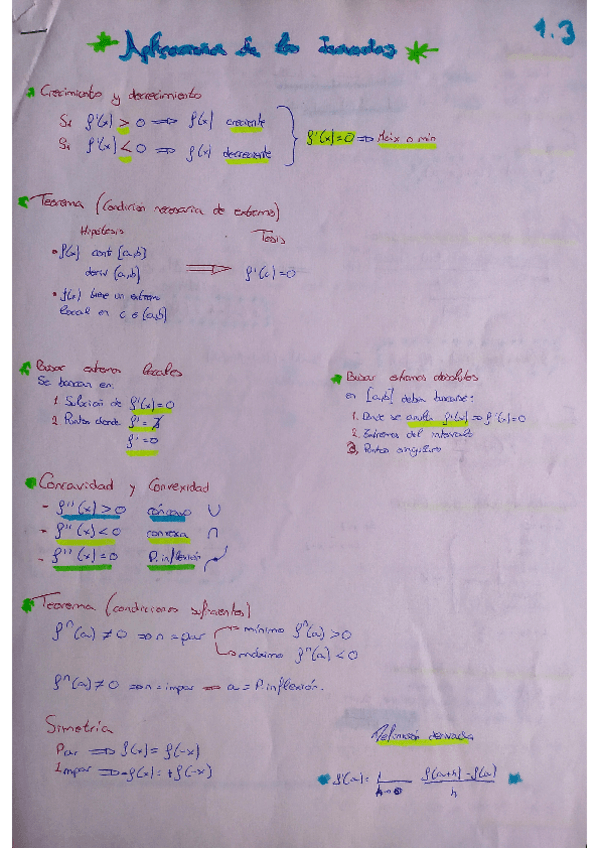 1.3
Aplicaciones de las derivadas
Crecimiento y decrecimiento
Si f'(x) > 0 => f(x) creciente
Si f'(x) < 0 => f(x) decreciente
f'(x)=0 => Máx o min
Teorema (Condición necesaria de extremo)
Hipótesis
Tesis
• f(x) cont [a,b]
deriv (a,b)
=> f'(c)=0
• f(x) tiene un extremo
local en c ∈ (a,b)
Buscar extremos locales
Se buscan en:
1. Solución de f'(x)=0
2. Puntos donde f' = ∄
f'=0
Buscar extremos absolutos
en [a,b] deben buscarse:
1. Donde se anula f'(x) => f'(x)=0
2. Extremos del intervalo
3. Puntos singulares
Concavidad y Convexidad
- f''(x)>0 cóncava ∪
- f''(x)<0 convexa ∩
- f''(x)=0 P. inflexión
Teorema (condiciones suficientes)
fⁿ(a) ≠ 0 => n = par
mínimo fⁿ(a) > 0
máximo fⁿ(a) < 0
fⁿ(a) ≠ 0 => n = impar => a = P. inflexión.
Simetría
Par => f(x) = f(-x)
Impar => -f(x) = +f(-x)
Definición derivada
f'(a) = l h→0 f(a+h) - f(a) / h